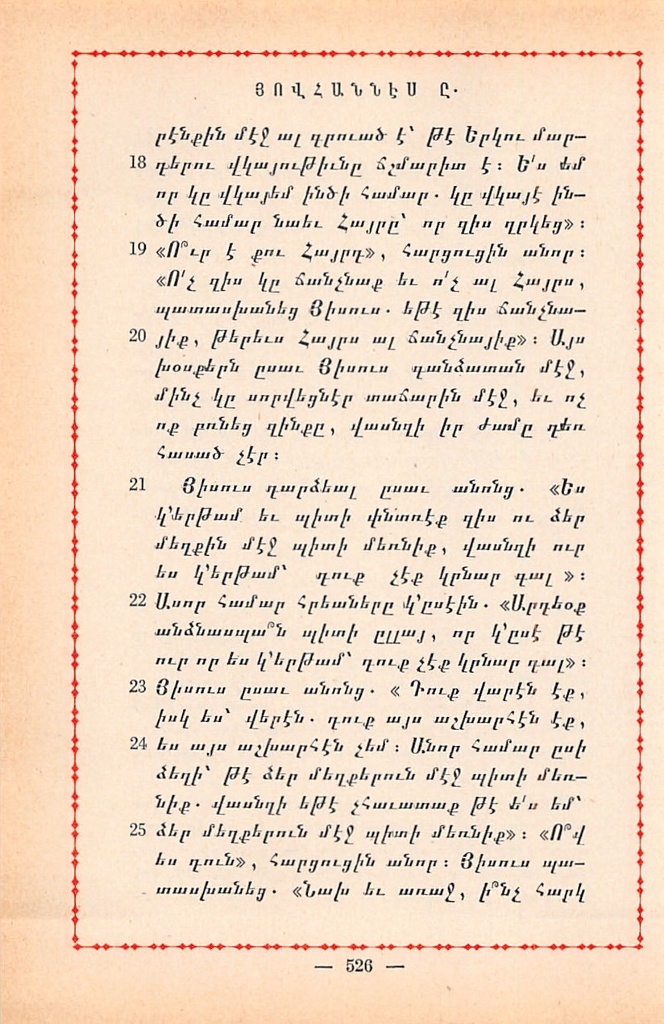 ՅՈՎՀԱՆՆԷՍ Ը.
րէնքին մէջ ալ գրուած է՝ թէ Երկու մար—
18 դերու վկայութիւնը ճշմարիտ է։ Ե՛ս եմ
որ կը վկայեմ ինծի համար. կը վկայէ ին—
ծի համար նաեւ Հայրը՝ որ զիս ղրկեց»։
19 «Ո՞ւր է քու Հայրդ», հարցուցին անոր։
«Ո՛չ զիս կը ճանչնաք եւ ո՛չ ալ Հայրս,
պատասխանեց Յիսուս. եթէ զիս ճանչնա—
20 յիք, թերեւս Հայրս ալ ճանչնայիք»։ Այս
խօսքերն ըսաւ Յիսուս գանձատան մէջ,
մինչ կը սորվեցնէր տաճարին մէջ, եւ ոչ
ոք բռնեց զինքը, վասնզի իր ժամը դեռ
հասած չէր։
21 Յիսուս դարձեալ ըսաւ անոնց. «Ես
կ՚երթամ եւ պիտի փնտռէք զիս ու ձեր
մեղքին մէջ պիտի մեռնիք, վասնզի ուր
ես կ՚երթամ՝ դուք չէք կրնար գալ »։
22 Ասոր համար հրեաները կ՚ըսէին. «Արդեօք
անձնասպա՞ն պիտի ըլլայ, որ կ՚ըսէ թէ
ուր որ ես կ՚երթամ՝ դուք չէք կրնար գալ»։
23 Յիսուս ըսաւ անոնց. « Դուք վարէն էք,
իսկ ես՝ վերէն. դուք այս աշխարհէն էք,
24 ես այս աշխարհէն չեմ։ Անոր համար ըսի
ձեզի՝ թէ ձեր մեղքերուն մէջ պիտի մեռ—
նիք. վասնզի եթէ չհաւատաք թէ ե՛ս եմ՝
25 ձեր մեղքերուն մէջ պիտի մեռնիք»։ «Ո՞վ
ես դուն», հարցուցին անոր։ Յիսուս պա—
տասխանեց. «Նախ եւ առաջ, ի՞նչ հարկ
— 526 —